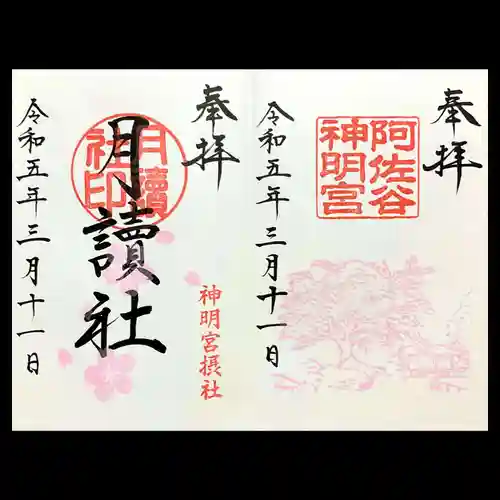 奉拝
阿佐谷
神明宮
令和五年三月十一日
奉拝
神明宮摂社
月讀社
月讀
社印
令和五年三月十一日